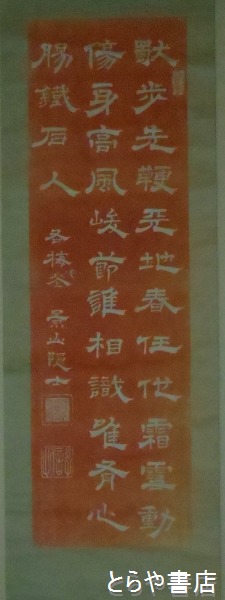 獣歩先鞭天地春任他霜雪動
傷身高風峻節誰相識唯有心
腸鐵石人
冬梅 景山隠士
とらや書店